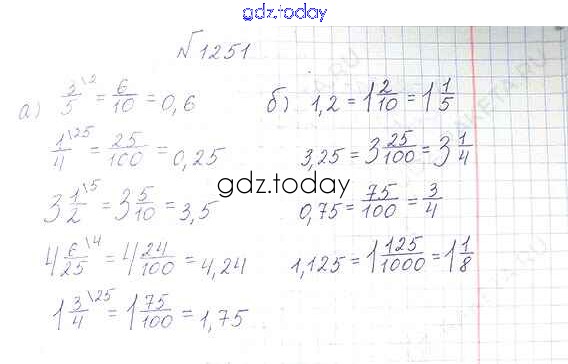 gdz.today
№1251
а) 3/5 \2 = 6/10 = 0,6
1/4 \25 = 25/100 = 0,25
3 1/2 \5 = 3 5/10 = 3,5
4 6/25 \4 = 4 24/100 = 4,24
1 3/4 \25 = 1 75/100 = 1,75
б) 1,2 = 1 2/10 = 1 1/5
3,25 = 3 25/100 = 3 1/4
0,75 = 75/100 = 3/4
1,125 = 1 125/1000 = 1 1/8
gdz.today